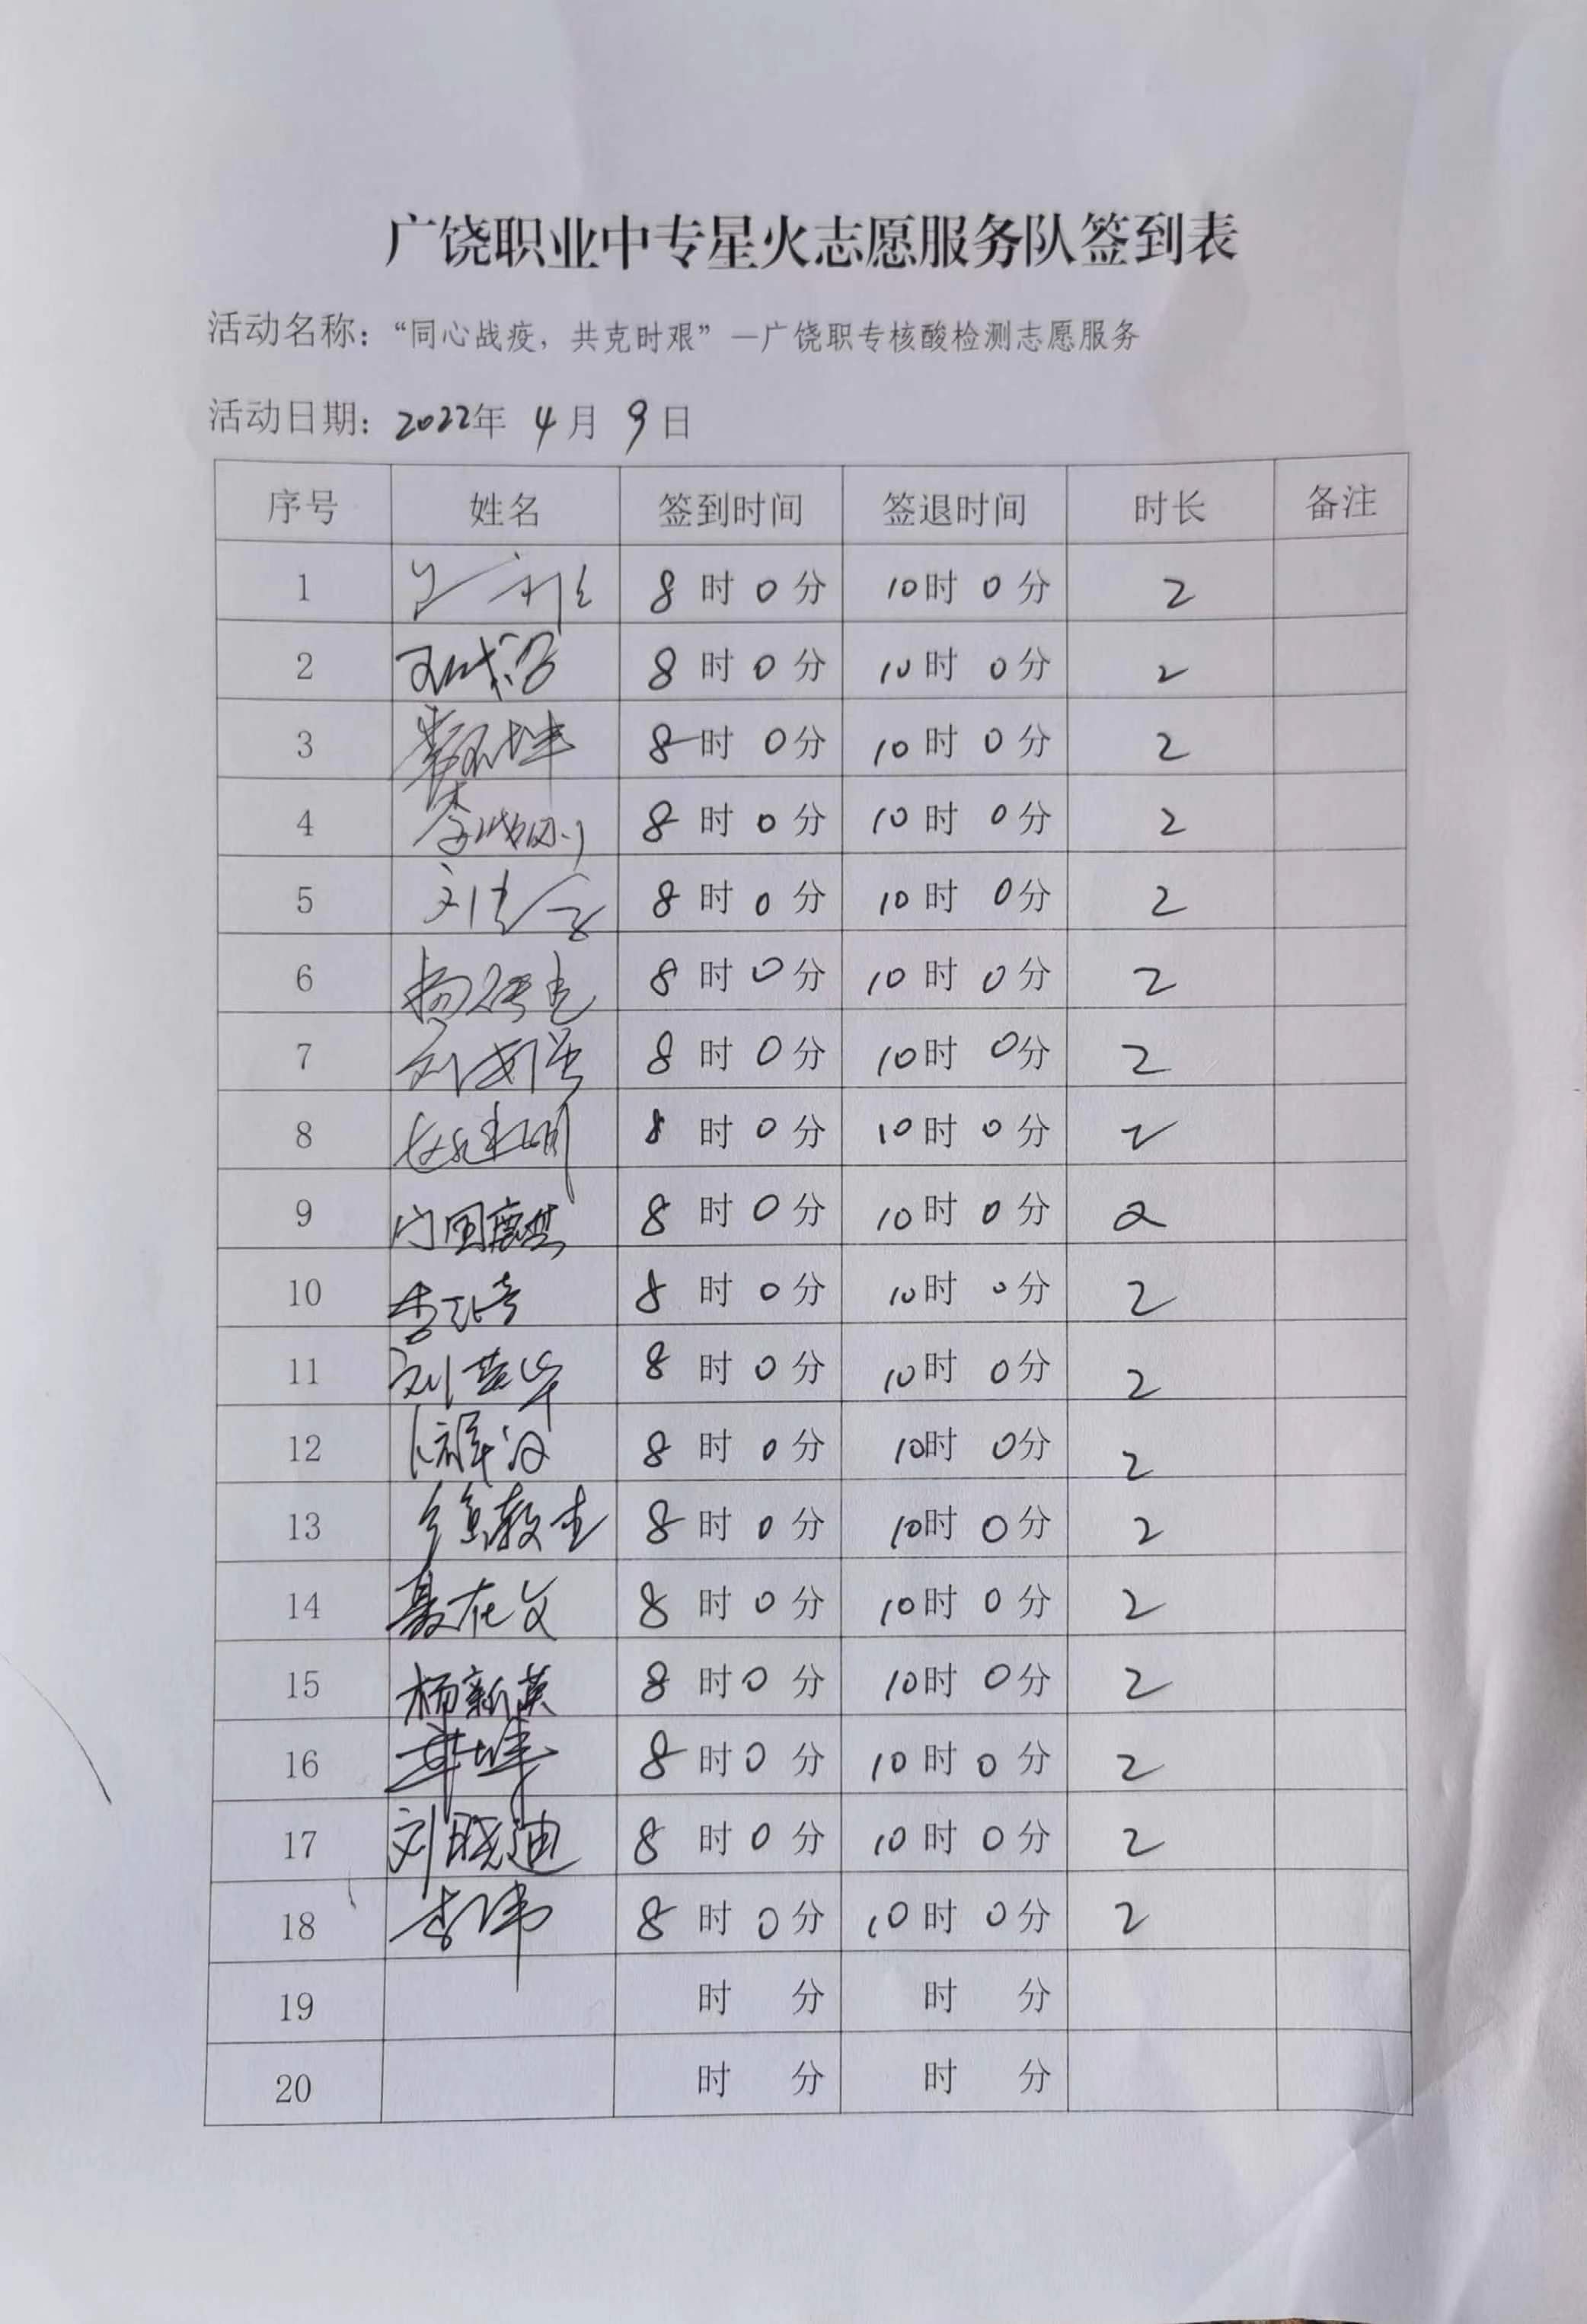 广饶职业中专星火志愿服务队签到表
活动名称：“同心战疫，共克时艰”—广饶职专核酸检测志愿服务
活动日期：2022年 4月 9日
序号 姓名 签到时间 签退时间 时长 备注
1 8时0分 10时0分 2
2 8时0分 10时0分 2
3 8时0分 10时0分 2
4 8时0分 10时0分 2
5 8时0分 10时0分 2
6 8时0分 10时0分 2
7 8时0分 10时0分 2
8 8时0分 10时0分 2
9 8时0分 10时0分 2
10 8时0分 10时0分 2
11 刘芸华 8时0分 10时0分 2
12 8时0分 10时0分 2
13 8时0分 10时0分 2
14 聂在文 8时0分 10时0分 2
15 杨新英 8时0分 10时0分 2
16 8时0分 10时0分 2
17 刘晓迪 8时0分 10时0分 2
18 李伟 8时0分 10时0分 2
19 时 分 时 分
20 时 分 时 分